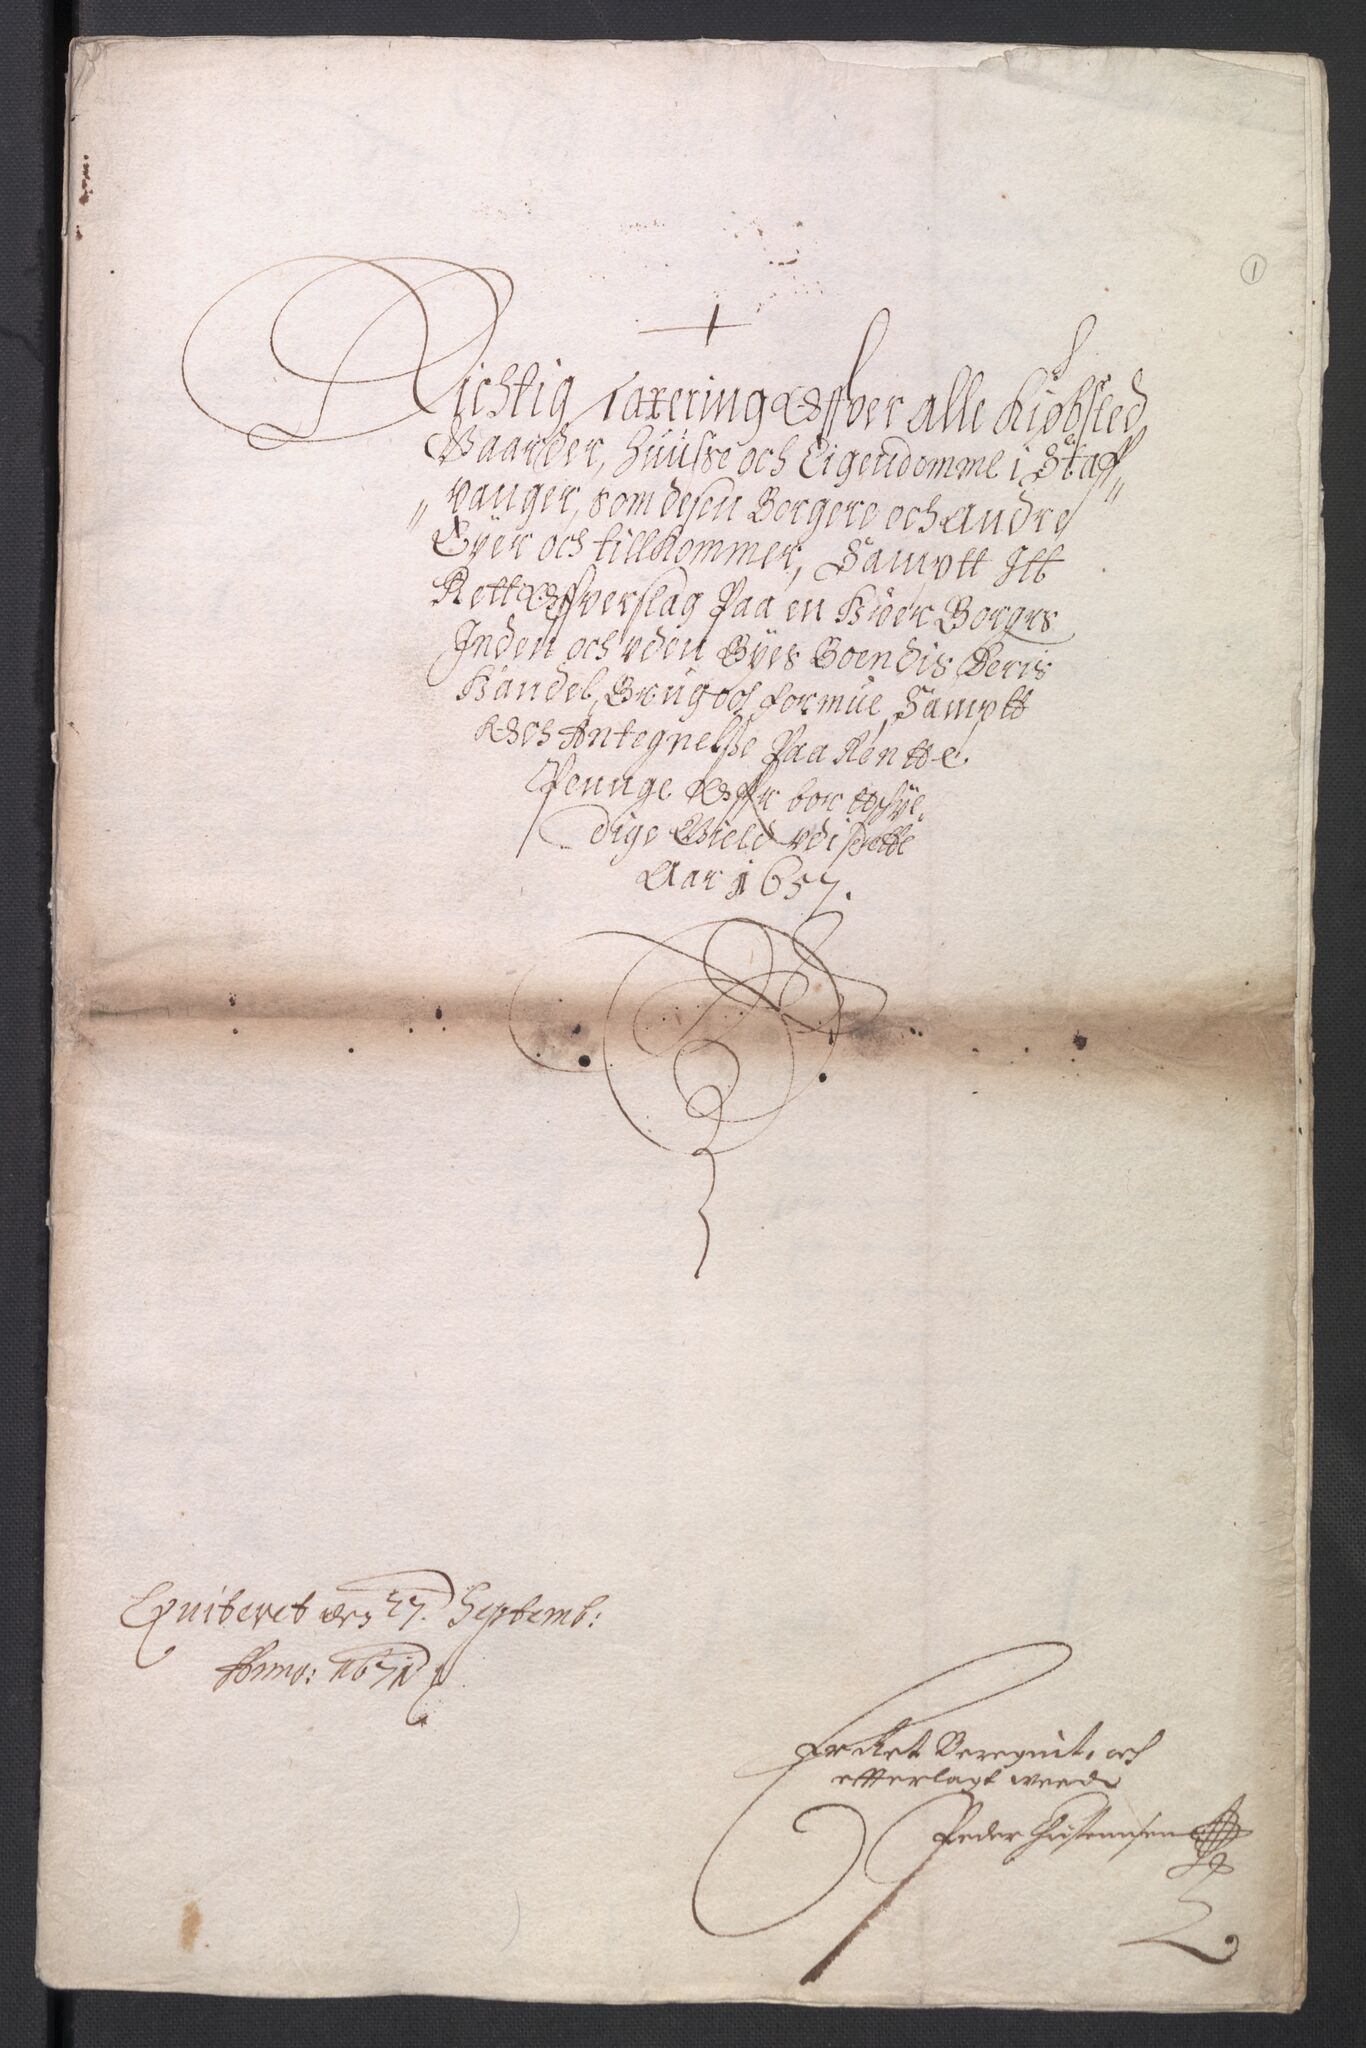 1
Richtig Taxering Offver alle Kiøbsted
Gaarder, Huusse och Eigendomme i Staff„
„vanger, som desen Borgere och Andre
Eyer och tillkommer, Sampt Itt
Rett Offverslag Paa en Hver Borgrs
Inden och uden Byes Boendis Deris
Handel, Brug och formue, Samptt
Och Antegnelsse Paa Rentte
Penge Offr bortt
dige Gield udi sette
Aar 1657.
Qviteret den 27. Septemb:
Anno: 1671
Beregnit, och
efterlagt
Peder